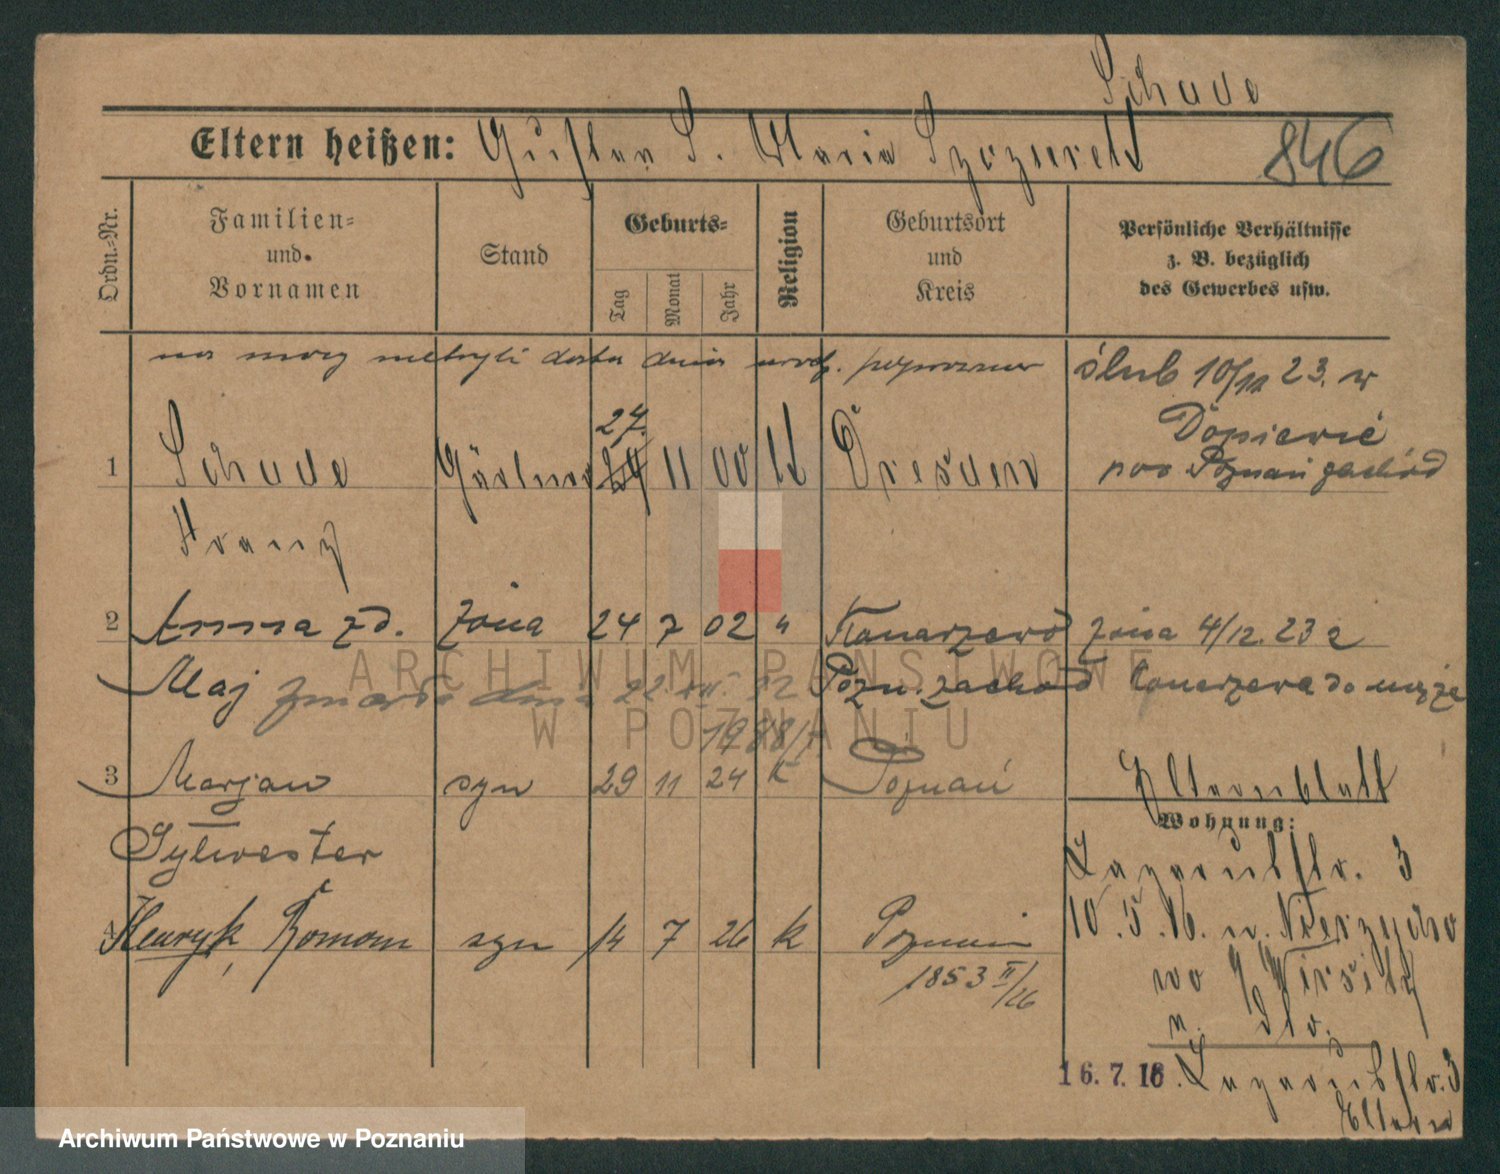 Schade
Eltern heißen: Gustav S. Maria
846
Ordn.-Nr.
Familien-
und
Vornamen
Stand
Geburts-
Tag
Monat
Jahr
Religion
Geburtsort
und
Kreis
Persönliche Verhältnisse
z. B. bezüglich
des Gewerbes usw.
na mocy metryki data dnia urodz. poprawna
ślub 10/11 23. w
Dopiewie
pow Poznań zachód
27.
1 Schade Gärtner 11 00 Dresden
Franz
2 Anna zd. żona 24 7 02 " Konarzewo żona 4/12. 23 z
Maj zmarła dnia 22 Pozn. zachód Konarzewa do męża
3 Marjan syn 29 11 24 k Poznań
Elternblatt
Wohnung:
Sylwester
Lazarusstr. 3
4 Henryk, Roman syn 14 7 26 k Poznań
10.5.16. n.
1853 II/26
Wirsitz
n.
16.7.16. Lazarusstr. 3
Eltern
ARCHIWUM PAŃSTWOWE
W POZNANIU
Archiwum Państwowe w Poznaniu